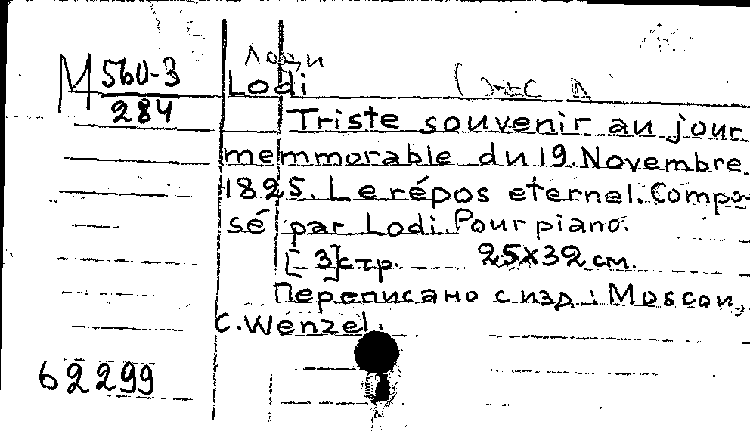 Лоди
М 560-3 Lodi
284 Triste souvenir au jour
memmorable du 19. Novembre.
1825. Le répos eternel. Compo-
sé par Lodi. Pour piano.
[3] стр. 25x32 см.
Переписано с изд.: Moscou,
C. Wenzel.
62299